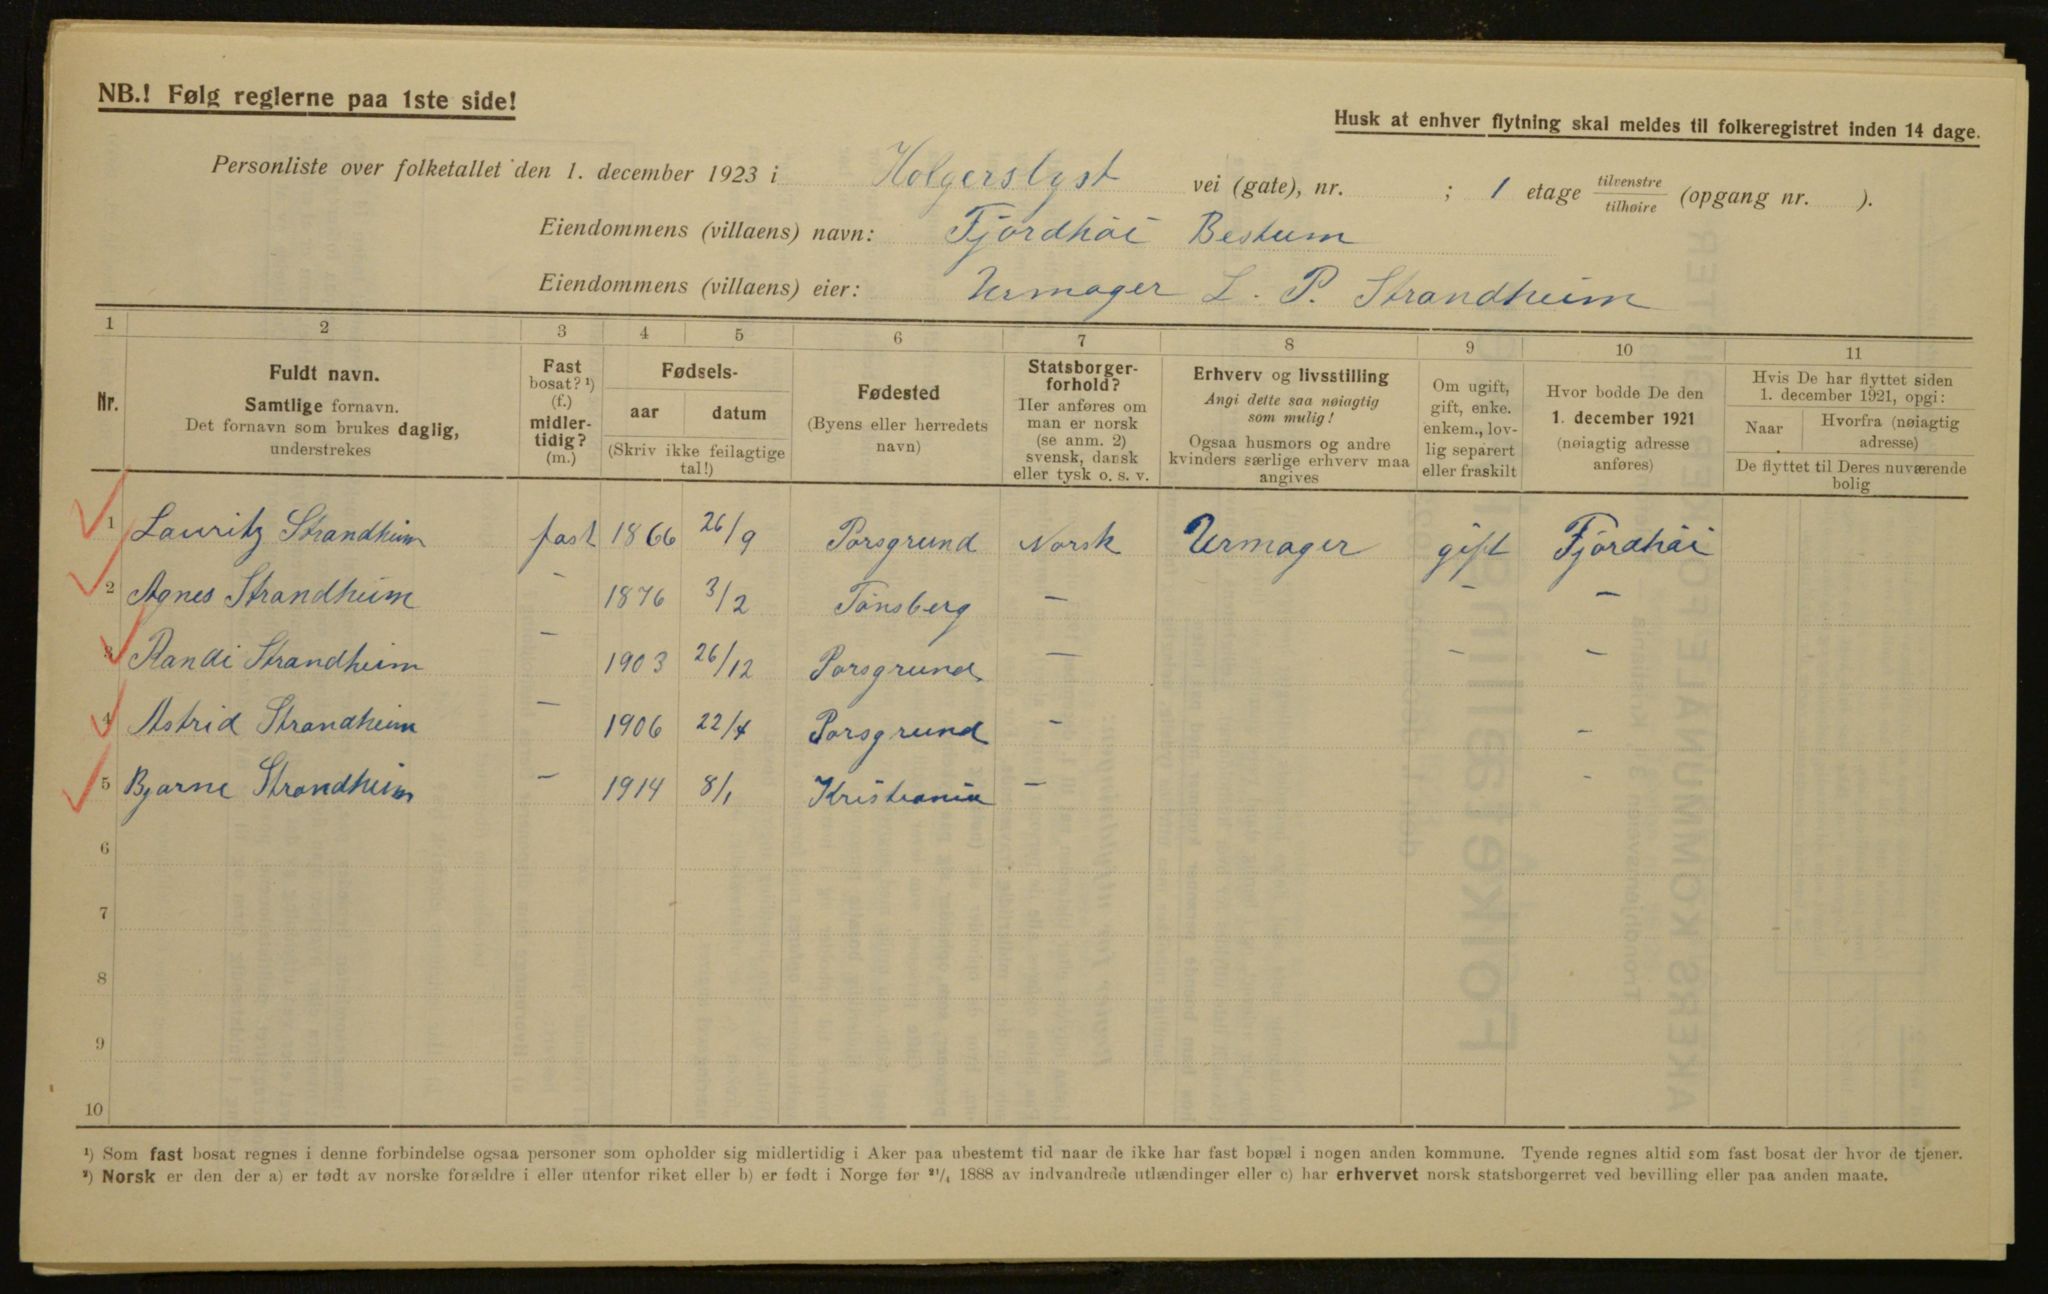 NB.! Følg reglerne paa 1ste side!
Husk at enhver flytning skal meldes til folkeregistret inden 14 dage.
Personliste over folketallet den 1. december 1923 i Holgerslyst vei (gate), nr. ; 1 etage tilvenstre/tilhøire (opgang nr. ).
Eiendommens (villaens) navn: Fjordhöi Bestum
Eiendommens (villaens) eier: Urmager L. P. Strandheim
1 2 3 4 5 6 7 8 9 10 11
Nr.
Fuldt navn.
Samtlige fornavn.
Det fornavn som brukes daglig,
understrekes
Fast
bosat? ¹)
(f.)
midler-
tidig?
(m.)
Fødsels-
aar datum
(Skriv ikke feilagtige
tal!)
Fødested
(Byens eller herredets
navn)
Statsborger-
forhold?
Her anføres om
man er norsk
(se anm. 2)
svensk, dansk
eller tysk o. s. v.
Erhverv og livsstilling
Angi dette saa nøiagtig
som mulig!
Ogsaa husmors og andre
kvinders særlige erhverv maa
angives
Om ugift,
gift, enke.
enkem., lov-
lig separert
eller fraskilt
Hvor bodde De den
1. december 1921
(nøiagtig adresse
anføres)
Hvis De har flyttet siden
1. december 1921, opgi:
Naar Hvorfra (nøiagtig
adresse)
De flyttet til Deres nuværende
bolig
1 Lauritz Strandheim fast 1866 26/9 Porsgrund Norsk Urmager gift Fjordhöi
2 Agnes Strandheim - 1876 3/2 Tönsberg - - -
3 Randi Strandheim - 1903 26/12 Porsgrund - - -
4 Astrid Strandheim - 1906 22/4 Porsgrund - -
5 Bjarne Strandheim - 1914 8/1 Kristiania - -
6
7
8
9
10
¹) Som fast bosat regnes i denne forbindelse ogsaa personer som opholder sig midlertidig i Aker paa ubestemt tid naar de ikke har fast bopæl i nogen anden kommune. Tyende regnes altid som fast bosat der hvor de tjener.
²) Norsk er den der a) er født av norske forældre i eller utenfor riket eller b) er født i Norge før ²¹/₄ 1888 av indvandrede utlændinger eller c) har erhvervet norsk statsborgerret ved bevilling eller paa anden maate.